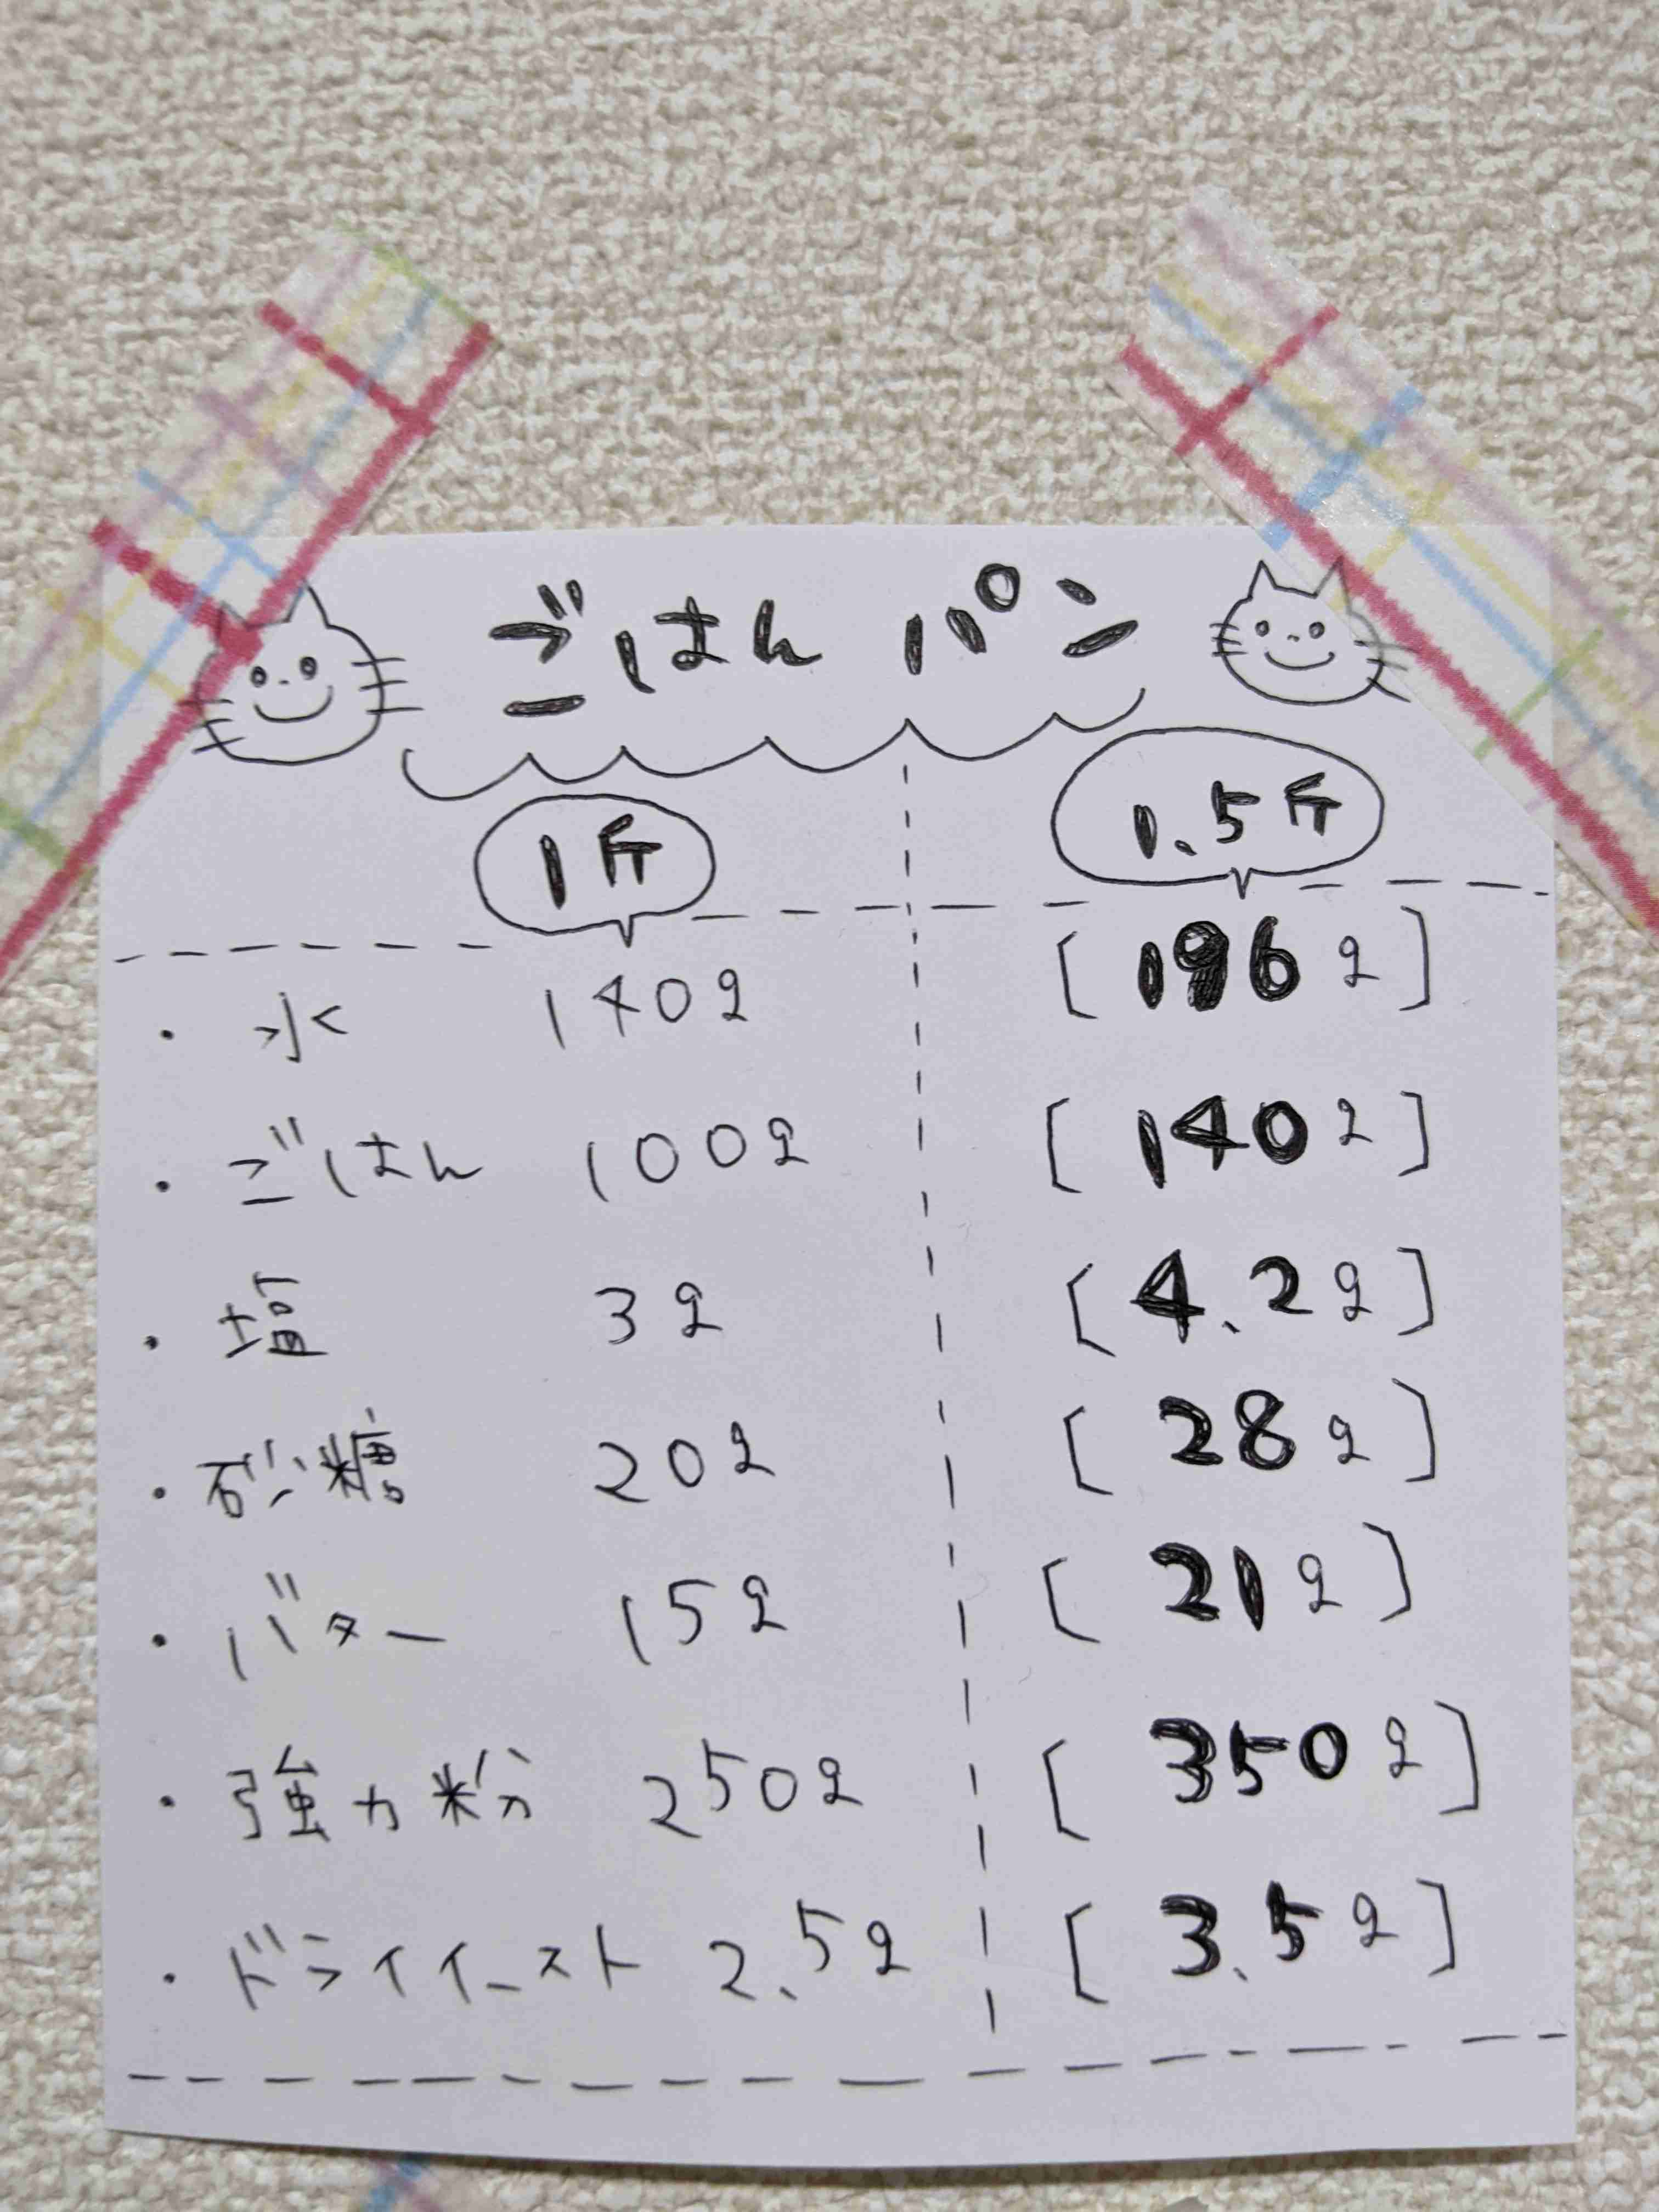 ごはんパン
1斤 1.5斤
・水 140g [196g]
・ごはん 100g [140g]
・塩 3g [4.2g]
・砂糖 20g [28g]
・バター 15g [21g]
・強力粉 250g [350g]
・ドライイースト 2.5g [3.5g]